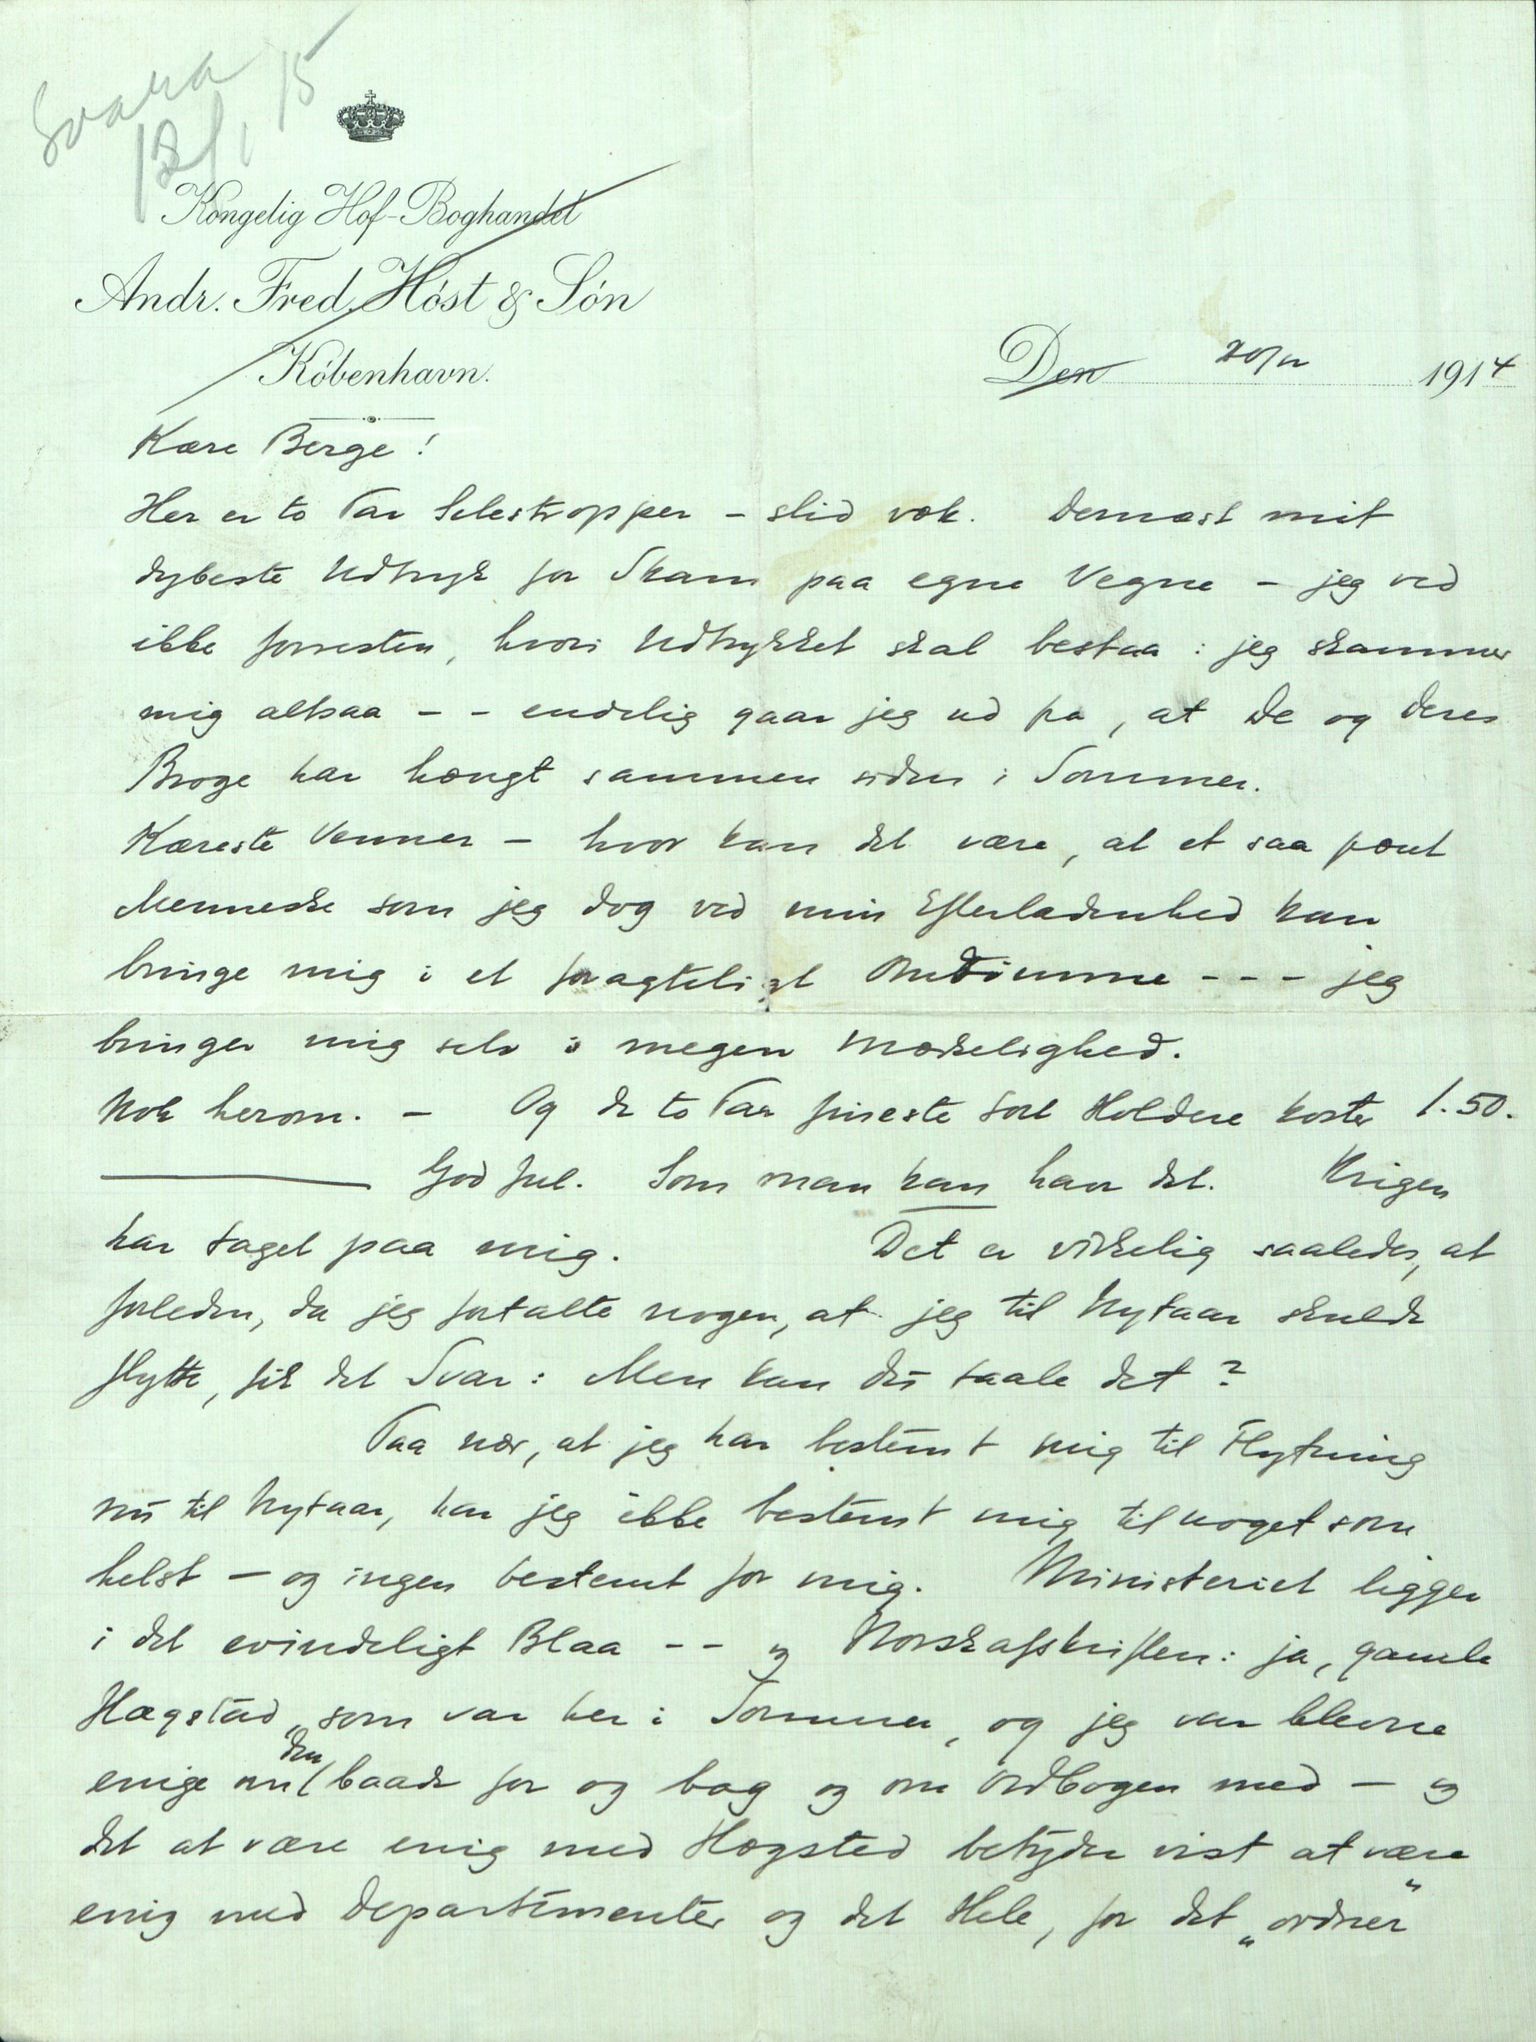 Svara
12/1 15
Kongelig Hof-Boghandel
Andr. Fred. Høst & Søn
København.
Den 20/12 1914
Kære Berge!
Her er to Par Selestropper - slid væk. Dernæst mit
dybeste Udtryk for Skam paa egne Vegne - jeg ved
ikke forresten, hvori Udtrykket skal bestaa: jeg skammer
mig altsaa - - endelig gaar jeg ud fra, at De og Deres
Broge har hængt sammen siden i Sommer.
Kæreste Venner - hvor kan det være, at et saa pænt
Menneske som jeg dog ved min Efterladenhed kan
bringe mig i et foragteligt Omdømme - - - jeg
bringer mig selv i megen Modselighed.
Nok herom. - Og de to Par fineste Sort Holdere koster 1.50.
God Jul. Som man kan have det. Krigen
har taget paa mig. Det er virkelig saaledes, at
forleden, da jeg fortalte nogen, at jeg til Nytaar skulde
flytte, fik det Svar: Men kan du taale det?
Paa nær, at jeg har bestemt mig til Flytning
nu til Nytaar, har jeg ikke bestemt mig til noget som
helst - og ingen bestemt for mig. Ministeriet ligger
i det evindeligt Blaa - - og Norskafskriften: ja, gamle
Hægstad, som var her i Sommer, og jeg var blevne
enige om den baade for og bag og om Ordbogen med - og
det at være enig med Hægsted betyder vist at være
enig med Departementer og det Hele, for det „ordner"